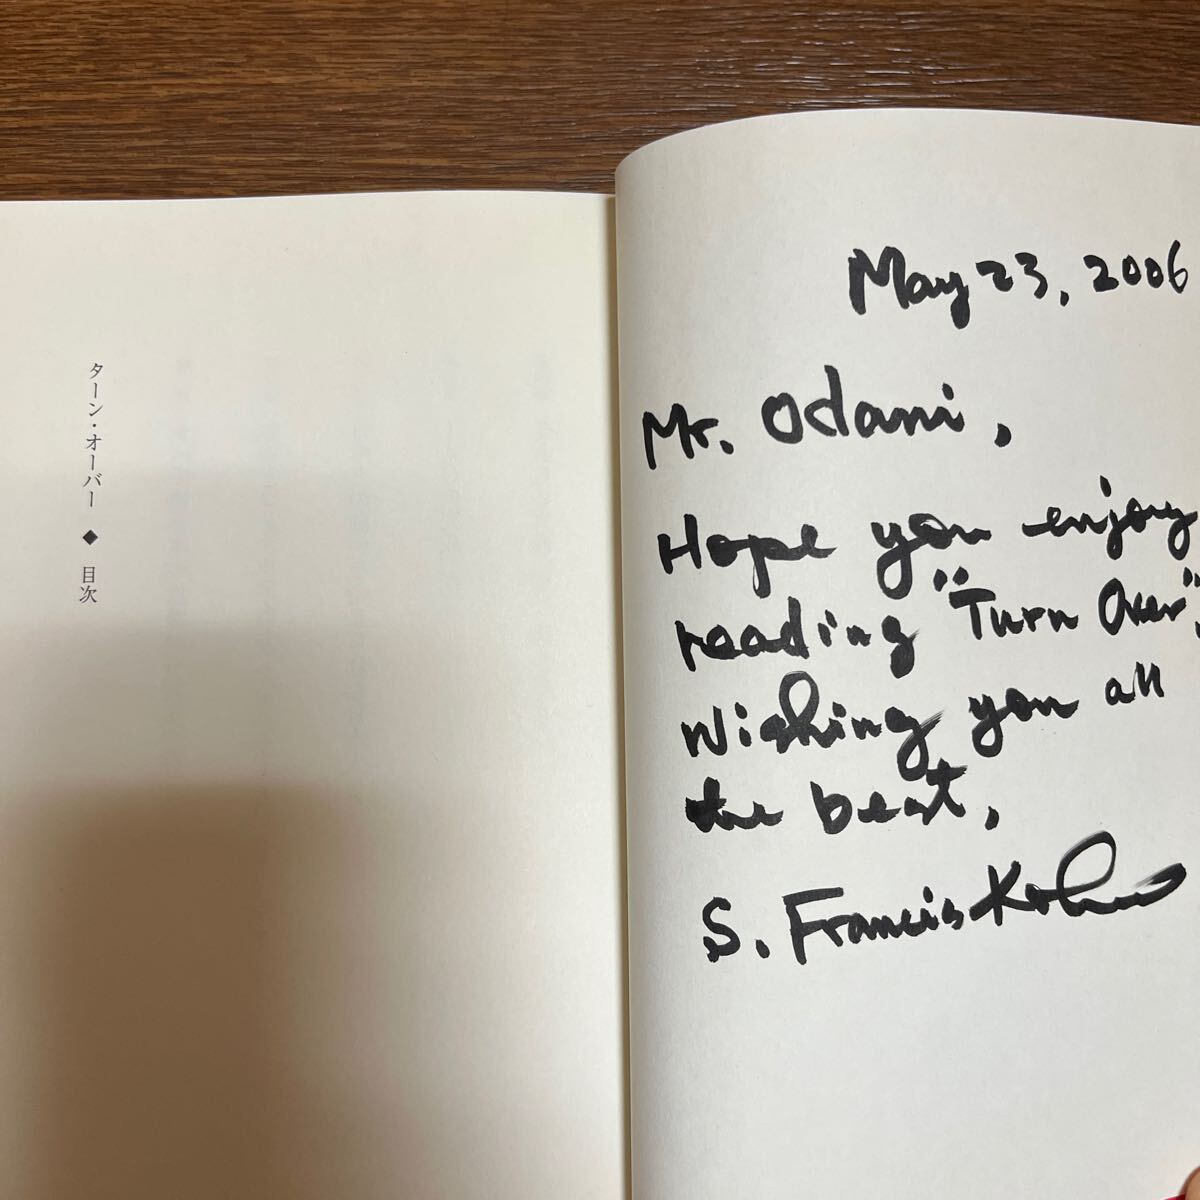 ターン・オーバー ◆ 目次
May 23, 2006
Mr. Odani,
Hope you enjoy
reading "Turn Over".
Wishing you all
the best,
S. Francis